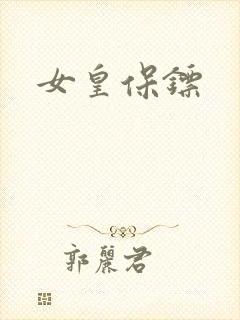 女皇保镖
郭丽君